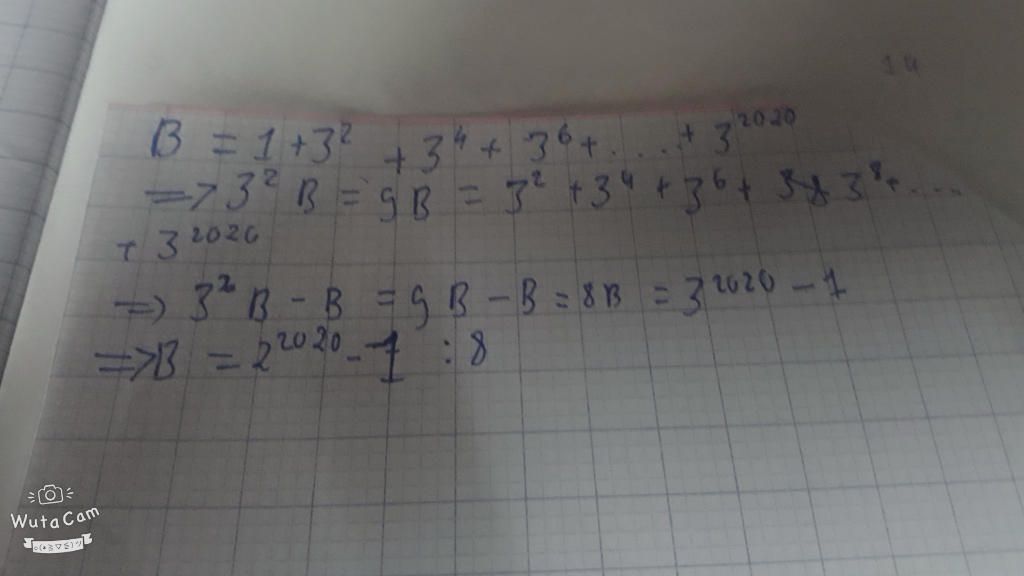 14
B = 1 + 3² + 3⁴ + 3⁶ + .... + 3²⁰²⁰
=> 3² B = 9B = 3² + 3⁴ + 3⁶ + 3⁸ + ....
+ 3²⁰²⁰
=> 3² B - B = 9B - B = 8B = 3²⁰²⁰ - 1
=> B = 2²⁰²⁰ - 1 : 8
WutaCam